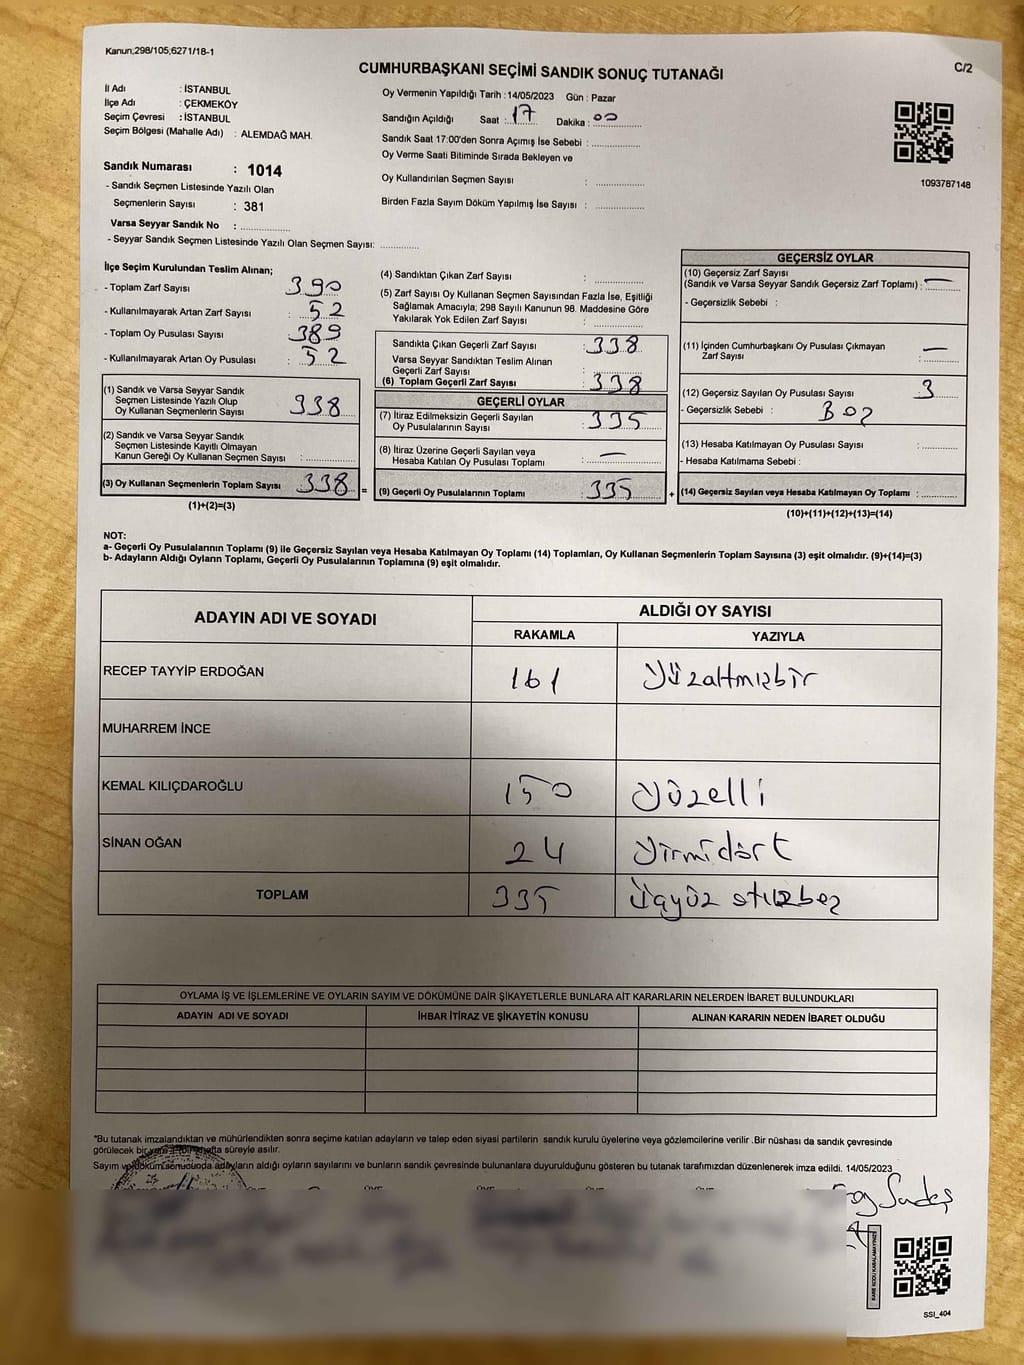 Kanun;298/105;6271/18-1
CUMHURBAŞKANI SEÇİMİ SANDIK SONUÇ TUTANAĞI
C/2
İl Adı : İSTANBUL
İlçe Adı : ÇEKMEKÖY
Seçim Çevresi : İSTANBUL
Seçim Bölgesi (Mahalle Adı) : ALEMDAĞ MAH.
Sandık Numarası : 1014
- Sandık Seçmen Listesinde Yazılı Olan
Seçmenlerin Sayısı : 381
Varsa Seyyar Sandık No : ..............
- Seyyar Sandık Seçmen Listesinde Yazılı Olan Seçmen Sayısı: ............
Oy Vermenin Yapıldığı Tarih : 14/05/2023 Gün : Pazar
Sandığın Açıldığı Saat : 17 Dakika : 00
Sandık Saat 17:00'den Sonra Açımış İse Sebebi : ..............
Oy Verme Saati Bitiminde Sırada Bekleyen ve
Oy Kullandırılan Seçmen Sayısı : ..............
Birden Fazla Sayım Döküm Yapılmış İse Sayısı : ..............
1093787148
İlçe Seçim Kurulundan Teslim Alınan;
- Toplam Zarf Sayısı : 390
- Kullanılmayarak Artan Zarf Sayısı : 52
- Toplam Oy Pusulası Sayısı : 389
- Kullanılmayarak Artan Oy Pusulası : 52
(1) Sandık ve Varsa Seyyar Sandık
Seçmen Listesinde Yazılı Olup
Oy Kullanan Seçmenlerin Sayısı : 338
(2) Sandık ve Varsa Seyyar Sandık
Seçmen Listesinde Kayıtlı Olmayan
Kanun Gereği Oy Kullanan Seçmen Sayısı : ..............
(3) Oy Kullanan Seçmenlerin Toplam Sayısı 338 =
(1)+(2)=(3)
(4) Sandıktan Çıkan Zarf Sayısı : ..............
(5) Zarf Sayısı Oy Kullanan Seçmen Sayısından Fazla İse, Eşitliği
Sağlamak Amacıyla; 298 Sayılı Kanunun 98. Maddesine Göre
Yakılarak Yok Edilen Zarf Sayısı : ..............
Sandıkta Çıkan Geçerli Zarf Sayısı : 338
Varsa Seyyar Sandıktan Teslim Alınan
Geçerli Zarf Sayısı : ..............
(6) Toplam Geçerli Zarf Sayısı : 338
GEÇERLİ OYLAR
(7) İtiraz Edilmeksizin Geçerli Sayılan
Oy Pusulalarının Sayısı : 335
(8) İtiraz Üzerine Geçerli Sayılan veya
Hesaba Katılan Oy Pusulası Toplamı : —
(9) Geçerli Oy Pusulalarının Toplamı : 335 +
GEÇERSİZ OYLAR
(10) Geçersiz Zarf Sayısı
(Sandık ve Varsa Seyyar Sandık Geçersiz Zarf Toplamı) : —
- Geçersizlik Sebebi :
(11) İçinden Cumhurbaşkanı Oy Pusulası Çıkmayan
Zarf Sayısı : —
(12) Geçersiz Sayılan Oy Pusulası Sayısı : 3
- Geçersizlik Sebebi :
(13) Hesaba Katılmayan Oy Pusulası Sayısı : ..............
- Hesaba Katılmama Sebebi :
(14) Geçersiz Sayılan veya Hesaba Katılmayan Oy Toplamı : ............
(10)+(11)+(12)+(13)=(14)
NOT:
a- Geçerli Oy Pusulalarının Toplamı (9) ile Geçersiz Sayılan veya Hesaba Katılmayan Oy Toplamı (14) Toplamları, Oy Kullanan Seçmenlerin Toplam Sayısına (3) eşit olmalıdır. (9)+(14)=(3)
b- Adayların Aldığı Oyların Toplamı, Geçerli Oy Pusulalarının Toplamına (9) eşit olmalıdır.
ADAYIN ADI VE SOYADI ALDIĞI OY SAYISI
RAKAMLA YAZIYLA
RECEP TAYYİP ERDOĞAN 161 Yüzaltmışbir
MUHARREM İNCE
KEMAL KILIÇDAROĞLU 150 Yüzelli
SİNAN OĞAN 24 Yirmidört
TOPLAM 335 Üçyüz
OYLAMA İŞ VE İŞLEMLERİNE VE OYLARIN SAYIM VE DÖKÜMÜNE DAİR ŞİKAYETLERLE BUNLARA AİT KARARLARIN NELERDEN İBARET BULUNDUKLARI
ADAYIN ADI VE SOYADI İHBAR İTİRAZ VE ŞİKAYETİN KONUSU ALINAN KARARIN NEDEN İBARET OLDUĞU
*Bu tutanak imzalandıktan ve mühürlendikten sonra seçime katılan adayların ve talep eden siyasi partilerin sandık kurulu üyelerine veya gözlemcilerine verilir .Bir nüshası da sandık çevresinde
görülecek bir yere bir hafta süreyle asılır.
Sayım ve döküm sonucunda adayların aldığı oyların sayılarını ve bunların sandık çevresinde bulunanlara duyurulduğunu gösteren bu tutanak tarafımızdan düzenlenerek imza edildi. 14/05/2023
KARE KODU KARALAMAYINIZ!!
SSI_404